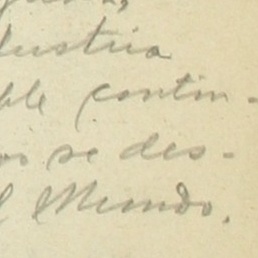 dustria
ble contin-
os se des-
l Mundo.